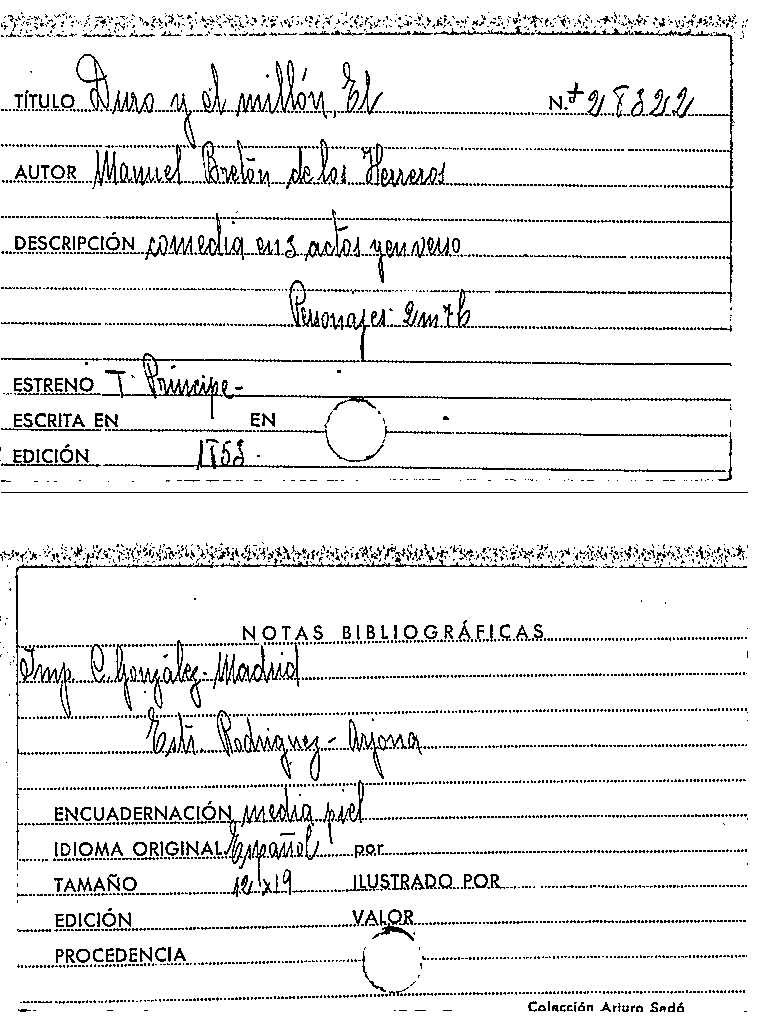 TÍTULO Duro y el millón, El N.º 28322
AUTOR Manuel Bretón de los Herreros
DESCRIPCIÓN comedia en 3 actos y en verso
Personajes: 2m 7h
ESTRENO T. Príncipe-
ESCRITA EN EN
EDICIÓN 1853.
NOTAS BIBLIOGRÁFICAS
Imp. C. González-Madrid
Estr. Rodriguez-Arjona
ENCUADERNACIÓN media piel
IDIOMA ORIGINAL Español por
TAMAÑO 12x19 ILUSTRADO POR
EDICIÓN VALOR
PROCEDENCIA
Colección Arturo Sedó